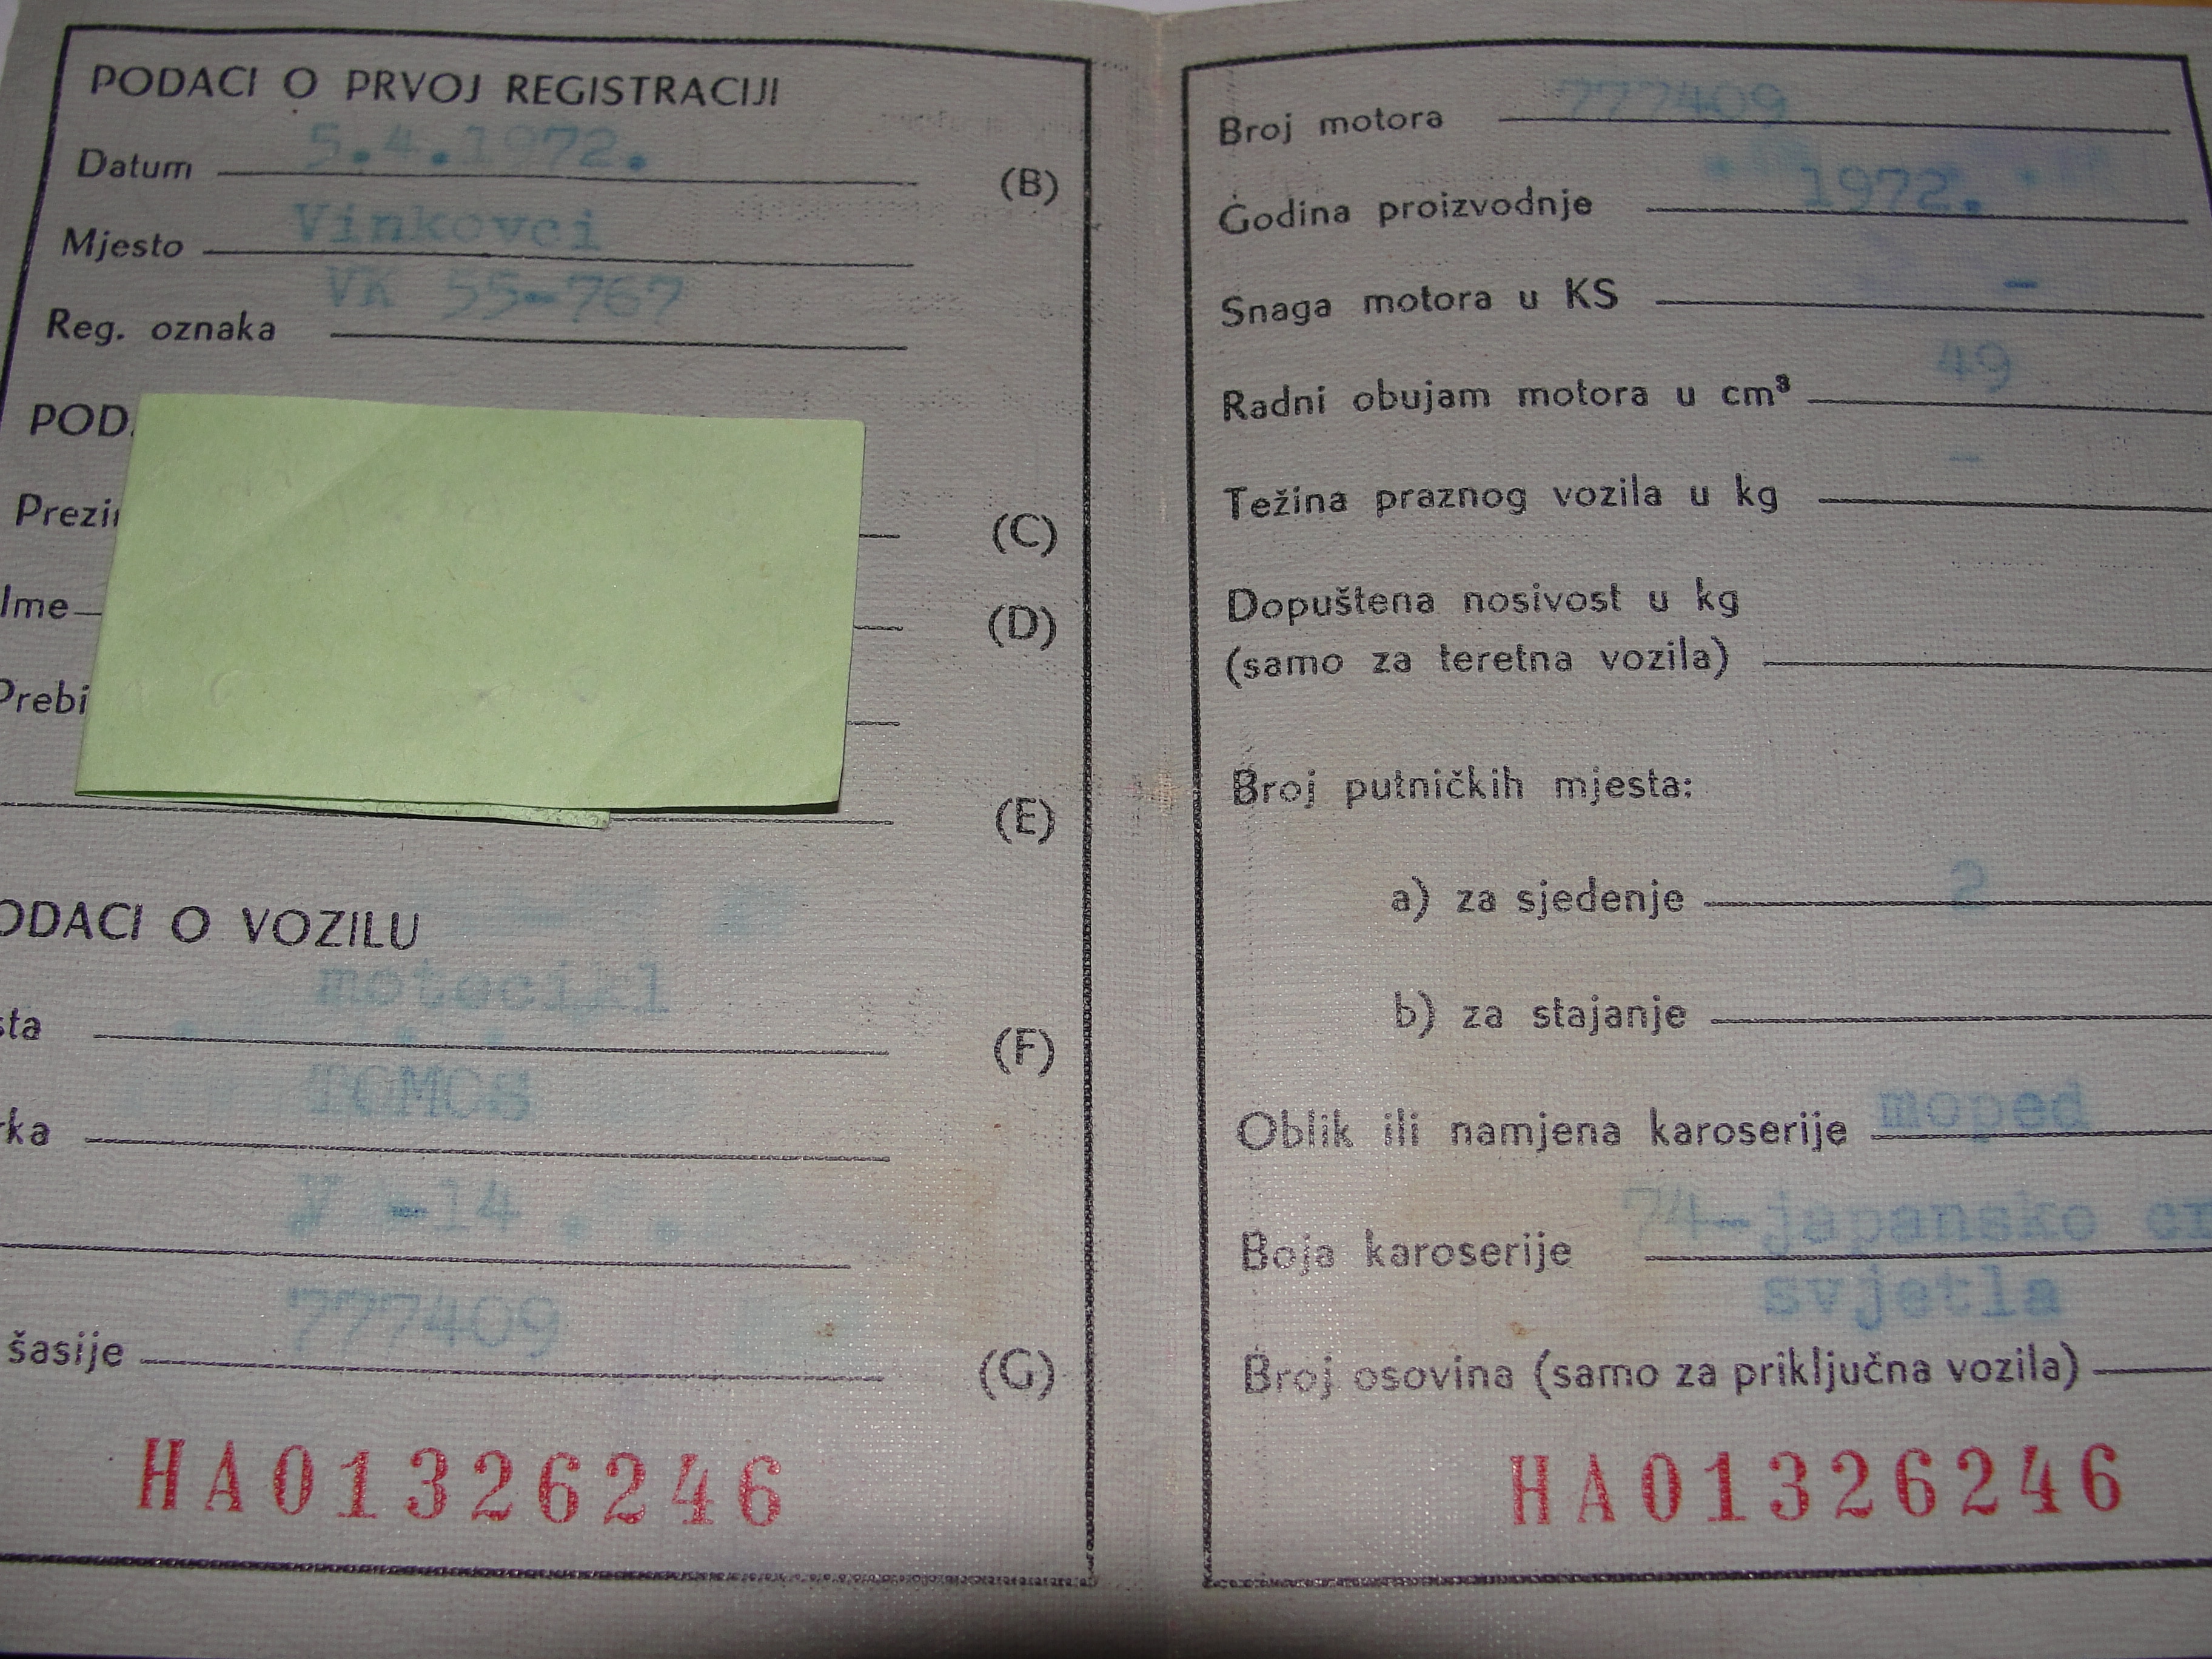 PODACI O PRVOJ REGISTRACIJI
Datum 5.4.1972. (B)
Mjesto Vinkovci
Reg. oznaka VK 55-767
POD
Prezi (C)
Ime (D)
Prebi
(E)
ODACI O VOZILU
sta motocikl (F)
rka TOMOS
V -14
šasije 777409 (G)
HA01326246
Broj motora 777409
Godina proizvodnje 1972.
Snaga motora u KS -
Radni obujam motora u cm³ 49
Težina praznog vozila u kg -
Dopuštena nosivost u kg
(samo za teretna vozila)
Broj putničkih mjesta:
a) za sjedenje 2
b) za stajanje
Oblik ili namjena karoserije moped
Boja karoserije 74-japansko cr
svjetla
Broj osovina (samo za priključna vozila)
HA01326246